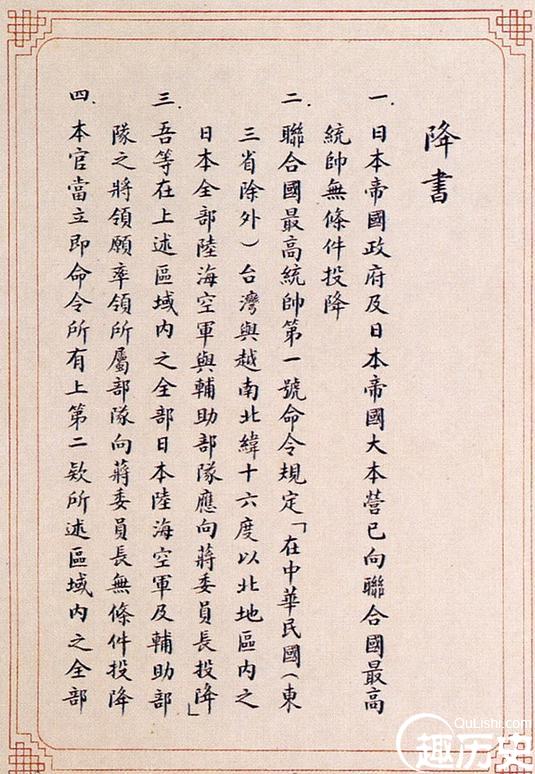 降書
一. 日本帝國政府及日本帝國大本營已向聯合國最高
統帥無條件投降
二. 聯合國最高統帥第一號命令規定「在中華民國(東
三省除外)台灣與越南北緯十六度以北地區內之
日本全部陸海空軍與輔助部隊應向蔣委員長投降」
三. 吾等在上述區域內之全部日本陸海空軍及輔助部
隊之將領願率領所屬部隊向蔣委員長無條件投降
四. 本官當立即命令所有上第二欵所述區域內之全部
QuLishi.com
趣历史